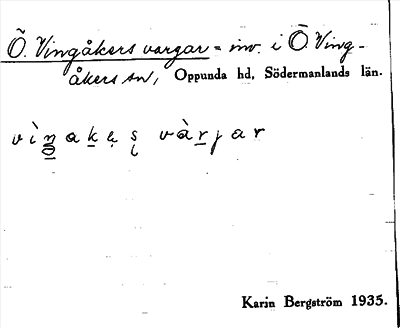 Ö. Vingåkers vargar = inv. i Ö Ving-
åkers sn, Oppunda hd, Södermanlands län.
vìŋakes vàrjar
Karin Bergström 1935.